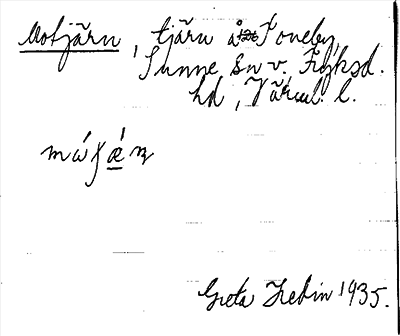 Motjärn, tjärn å Toneby,
Sunne sn v. Fryksd.
hd, Värml. l.
máʃǽɳ
Greta Hedin 1935.